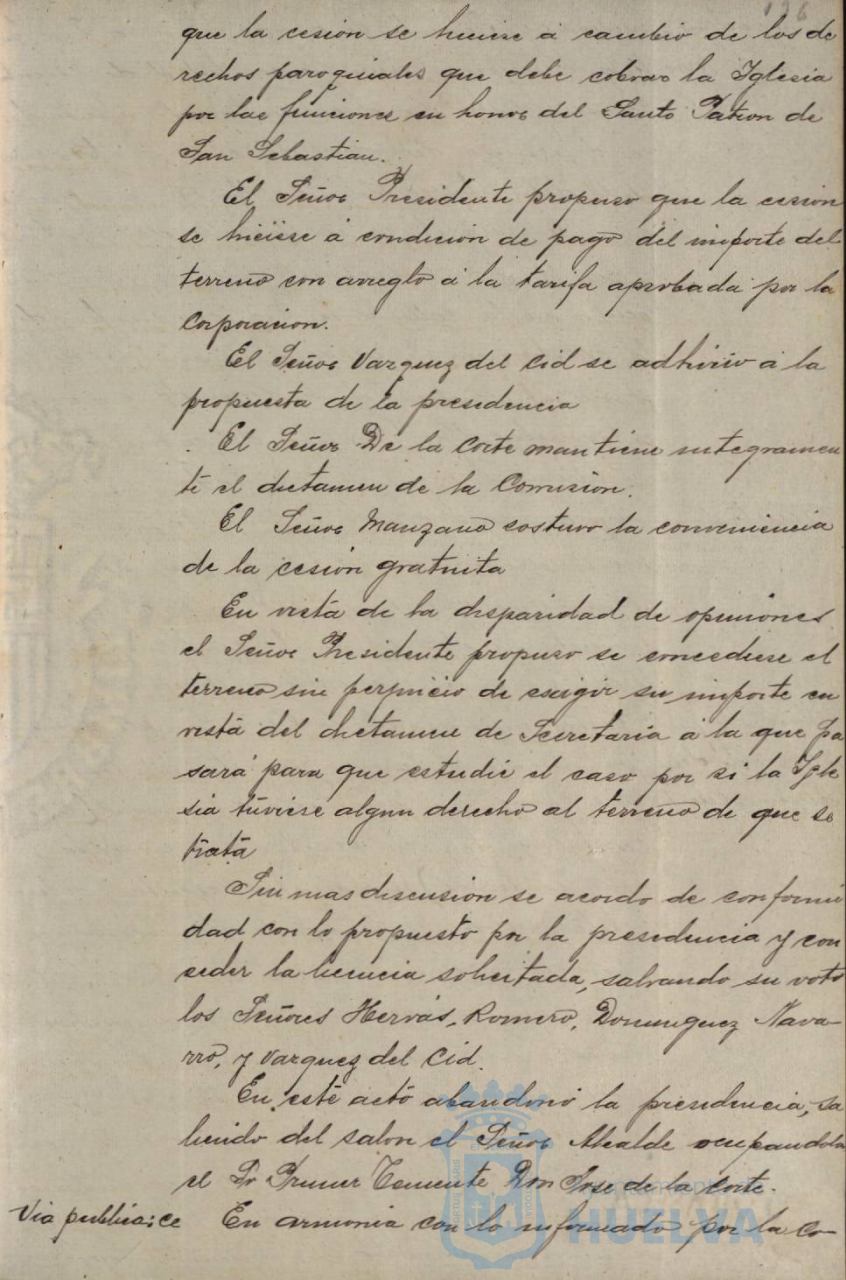 136
que la cesión se hiciese á cambio de los de
rechos paroquiales que debe cobrar la Iglesia
por las funciones en honor del Santo Patron de
San Sebastian.
El Señor Presidente propuso que la cesión
se hiciese á condicion de pago del importe del
terreno con arreglo á la tarifa aprobada por la
Corporacion.
El Señor Vazquez del Cid se adhirió á la
propuesta de la presidencia
El Señor De la Corte mantiene integramen
te el dictamen de la Comision.
El Señor Manzano sostuvo la conveniencia
de la cesión gratuita
En vista de la disparidad de opiniones
el Señor Presidente propuso se concediese el
terreno sin perjuicio de exigir su importe en
vista del dictamen de Secretaria á la que pa
sará para que estudie el caso por si la Igle
sia tuviese algun derecho al terreno de que se
trata
Sin mas discusion se acordo de conformi
dad con lo propuesto por la presidencia y con
ceder la licencia solicitada, salvando su voto
los Señores Hervás, Romero, Dominguez Nava-
rro, y Vazquez del Cid.
En este acto abandonó la presidencia, sa
liendo del salon el Señor Alcalde ocupandola
el Sr Primer Teniente Don Jose de la Corte.
Via publica: ce En armonia con lo informado por la Co-
HUELVA